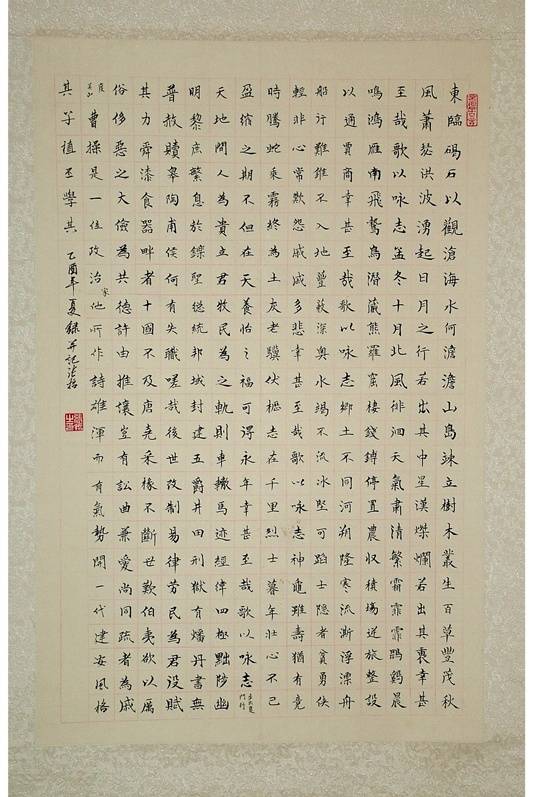 東臨碣石以觀滄海水何澹澹山島竦立樹木叢生百草豐茂秋
風蕭瑟洪波湧起日月之行若出其中星漢燦爛若出其裏幸甚
至哉歌以咏志孟冬十月北風徘徊天氣肅清繁霜霏霏鵾鷄晨
鳴鴻雁南飛鷙鳥潛藏熊羆窟棲錢鎛停置農收積場逆旅整設
以通賈商幸甚至哉歌以咏志鄉土不同河朔隆寒流澌浮漂舟
船行難錐不入地豐藾深奧水竭不流冰堅可蹈士隱者貧勇俠
輕非心常歎怨戚戚多悲幸甚至哉歌以咏志神龜雖壽猶有竟
時騰蛇乘霧終為土灰老驥伏櫪志在千里烈士暮年壯心不已
盈縮之期不但在天養怡之福可得永年幸甚至哉歌以咏志步出夏門行
天地間人為貴立君牧民為之軌則車轍馬迹經緯四極黜陟幽
明黎庶繁息於鑠聖總統邦域封建五爵井田刑獄有燔丹書無
普赦贖皋陶甫侯何有失職嗟哉後世改制易律勞民為君役賦
其力舜漆食器畔者十國不及唐堯采椽不斲世歎伯夷欲以厲
俗侈惡之大儉為共德許由推讓豈有訟曲兼愛尚同疏者為戚
度關山曹操是一位政治家他所作詩雄渾而有氣勢開一代建安風格
其子植丕學其 乙酉年夏錄并記